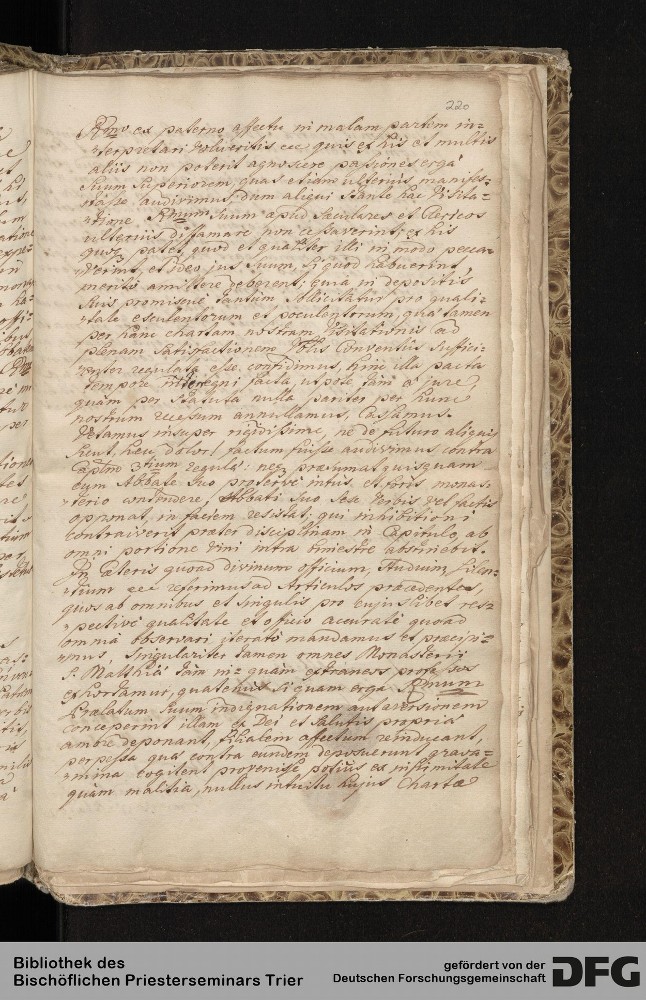 220
Rmo ex paterno affectu in malam partem in=
=terpretari volueritis ecc quis ex his et multis
aliis non poterit agnoscere passiones erga
suum Superiorem, quas etiam ulterius manifes=
=tasse audivimus, dum aliqui stante hac Visita=
=tione Rmum suum apud saeculares et Clericos
ulterius diffamare non cessaverint; ex his
patet, quod et qualiter illi in modo pecca=
=verint, et ideo jus suum, si quod habuerint,
merito amittere deberent; quia in depositis
suis promiscue tantum sollicitatur pro quali=
=tate esculentorum et poculentorum, quâ tamen
per hanc chartam nostram Visitationis ad
plenam satisfactionem Conventus suffici=
=enter regulata esse confidimus, hinc illa pacta
tempore interregni facta, utpote tam à jure,
quàm per statuta nulla pariter per hunc
nostrum recessum annullamus, Cassamus.
Vetamus insuper rigidissime, ne de futuro aliquis
sicut, heu dolor! factum fuisse audivimus contra
regula: neq praesumat quisquam
cum Abbate suo proterve intus, et foris monas=
=terio contendere, Abbati suo sese verbis vel factis
opponat, in faciem resistat; qui inhibitioni
contraiverit praeter disciplinam in Capitulo, ab
omni portione vini intra bimestre abstinebit.
In caeteris quoad divinum officium, studium, silen=
=tium ecc referimus ad Articulos praecedentes,
quos ab omnibus et singulis pro cujuslibet res=
=pective qualitate et officio accurate quoad
omnia observari iterato mandamus et praecipi=
=mus singulariter tamen omnes Monasterii
S. Matthiae tam in= quam extraneos professos
exhortamur, quatenus si quam erga Rmum
Praelatum suum indignationem aut aversionem
conceperint illam ex Dei et salutis propria
amore deponant, filialem affectum reinducant,
perpessa quae contra eundem deposuerunt grava=
=mina cogitent provenisse potius ex infirmitate
quàm malitia, nullus intuitu hujus Chartae
Bibliothek des
Bischöflichen Priesterseminars Trier
gefördert von der
Deutschen Forschungsgemeinschaft
DFG